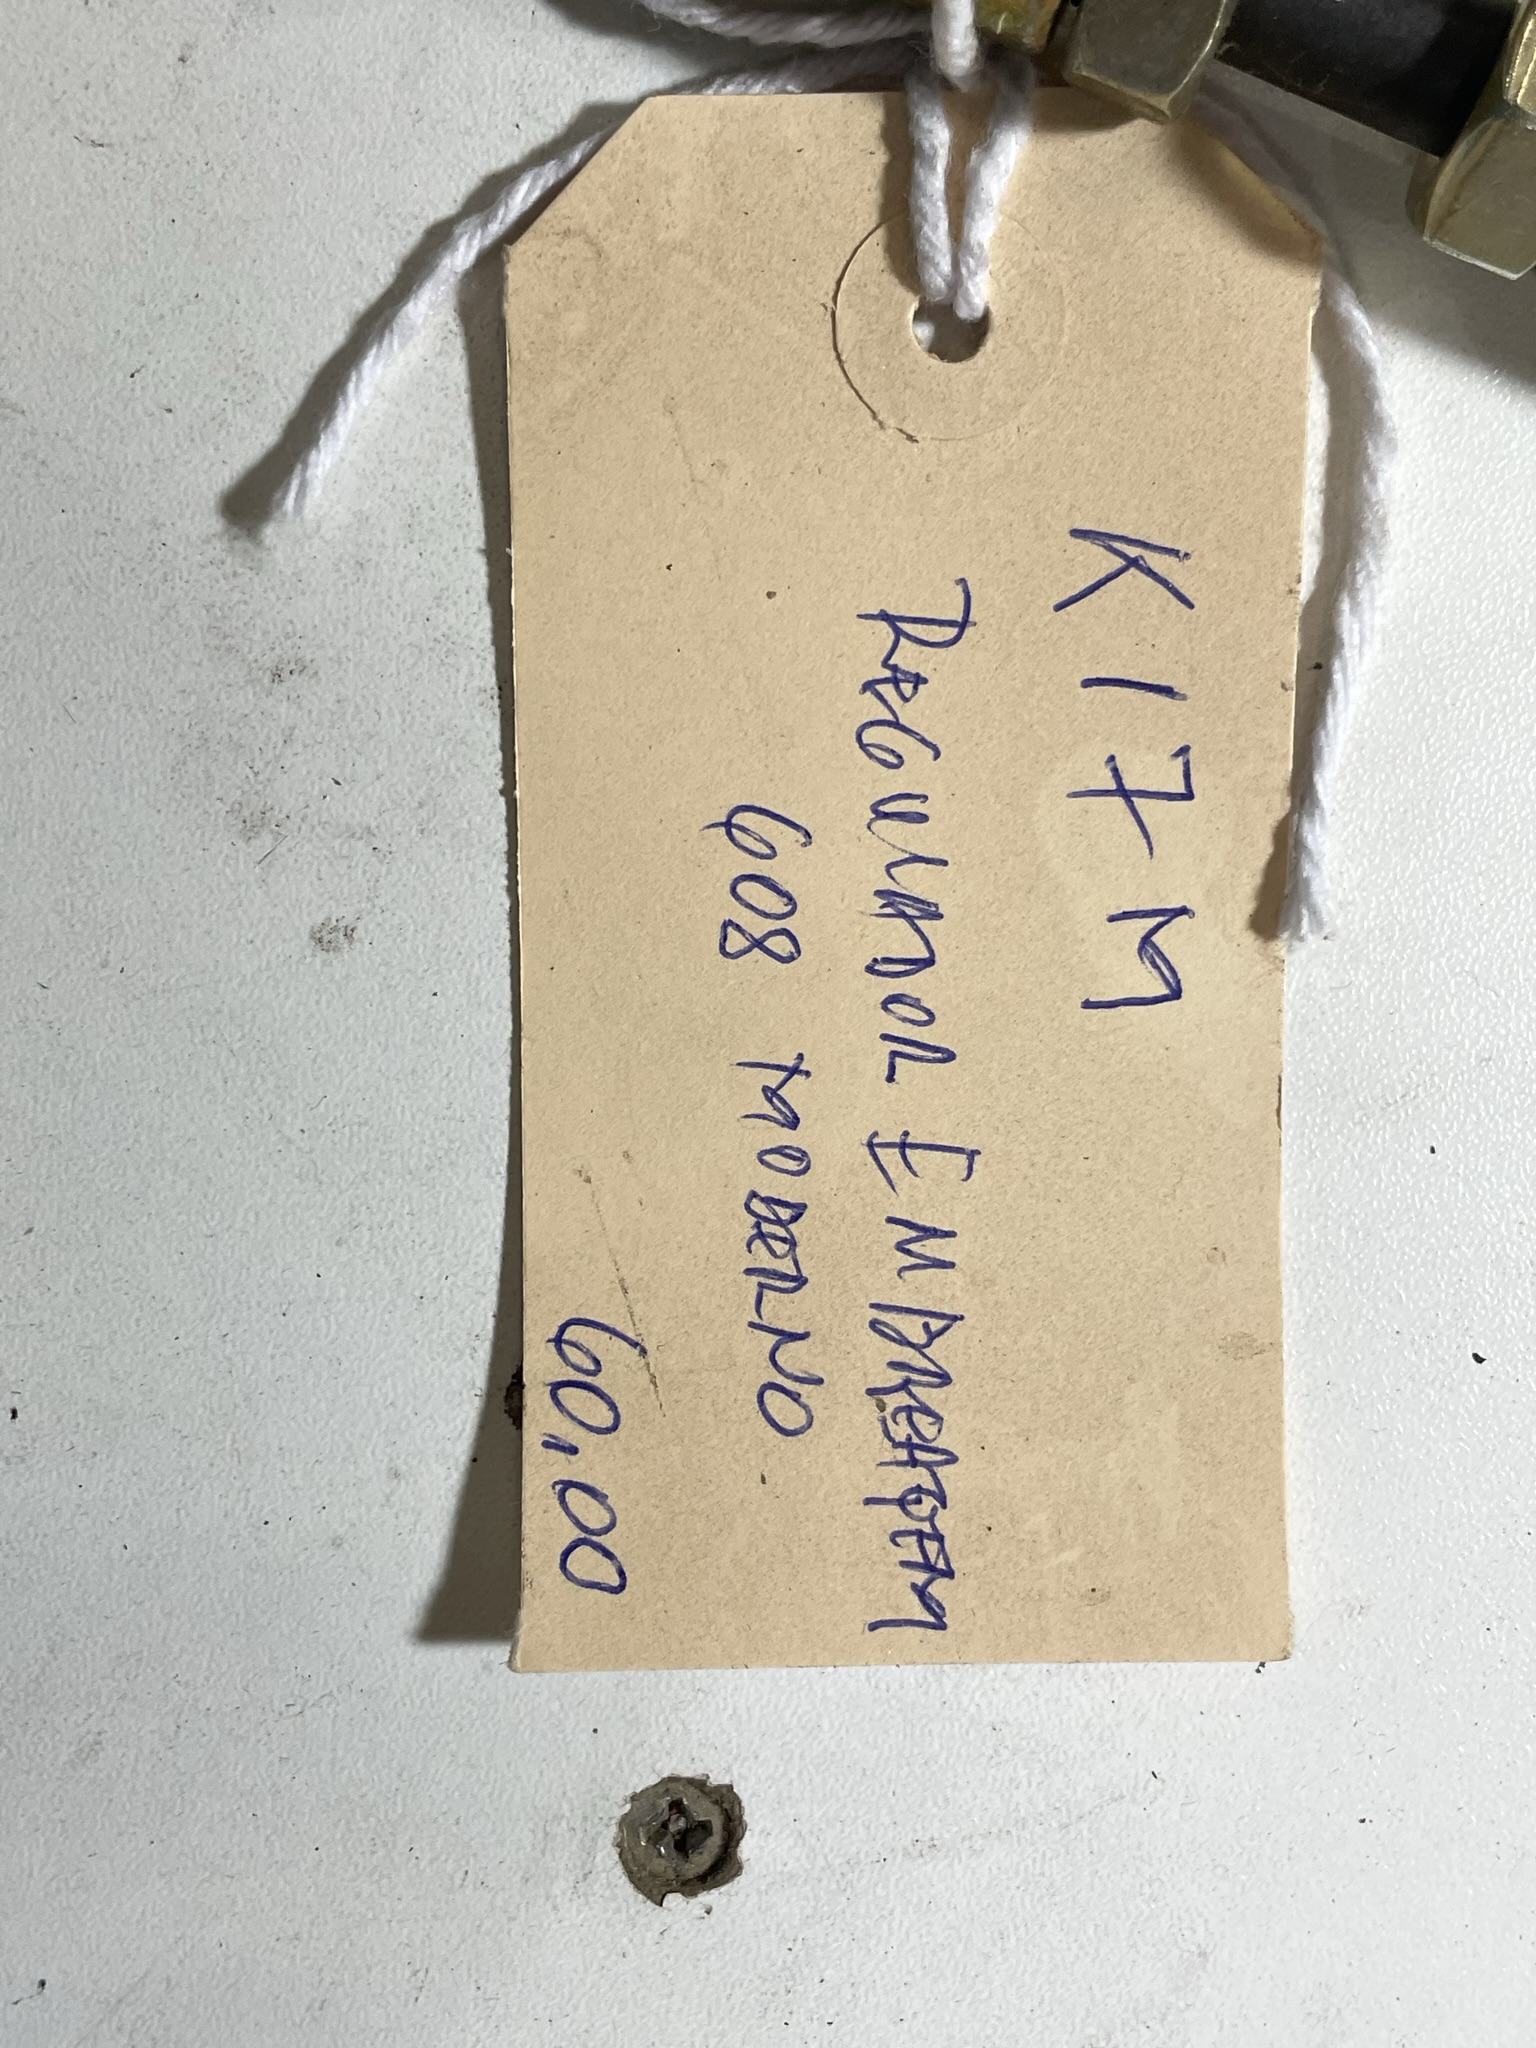 K17M
REGULADOR EMBREAGEM
608 MODERNO
60,00